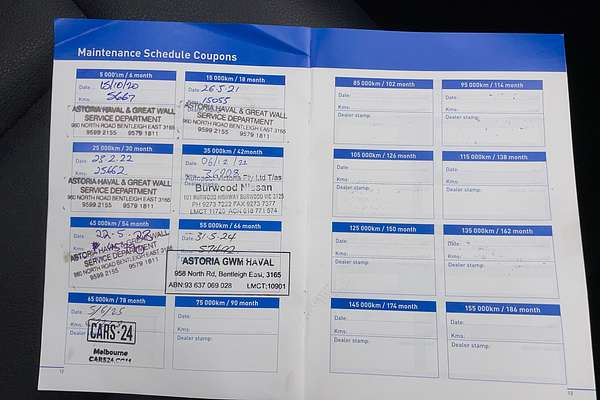 Maintenance Schedule Coupons
5 000km / 6 month
Date: 15/10/20
Kms: 5667
ASTORIA HAVAL & GREAT WALL
SERVICE DEPARTMENT
960 NORTH ROAD BENTLEIGH EAST 3165
9599 2155 9579 1811
15 000km / 18 month
Date: 26.5.21
Kms: 15055
ASTORIA HAVAL & GREAT WALL
SERVICE DEPARTMENT
960 NORTH ROAD BENTLEIGH EAST 3165
9599 2155 9579 1811
25 000km / 30 month
Date: 23.2.22
Kms: 25662
ASTORIA HAVAL & GREAT WALL
SERVICE DEPARTMENT
960 NORTH ROAD BENTLEIGH EAST 3165
9599 2155 9579 1811
35 000km / 42month
Date: 06/12/22
Kms:
Pty Ltd T/as
Burwood Nissan
101 BURWOOD HIGHWAY BURWOOD VIC 3125
PH 9273 7222 FAX 9273 7377
LMCT 11720 ACN 018 771 574
45 000km / 54 month
Date: 22.5.23
Kms:
ASTORIA HAVAL & GREAT WALL
SERVICE DEPARTMENT
960 NORTH ROAD BENTLEIGH EAST 3165
9599 2155 9579 1811
55 000km / 66 month
Date: 31.5.24
Kms:
ASTORIA GWM HAVAL
958 North Rd, Bentleigh East, 3165
ABN:93 637 069 028 LMCT:10901
65 000km / 78 month
Date: 5/5/25
Kms:
Dealer
CARS24
Melbourne
CARS24.COM
75 000km / 90 month
Date:
Kms:
Dealer stamp:
12
85 000km / 102 month
Date:
Kms:
Dealer stamp:
95 000km / 114 month
Date:
Kms:
Dealer stamp:
105 000km / 126 month
Date:
Kms:
Dealer stamp:
115 000km / 138 month
Date:
Kms:
Dealer stamp:
125 000km / 150 month
Date:
Kms:
Dealer stamp:
135 000km / 162 month
Date:
Kms:
Dealer stamp:
145 000km / 174 month
Date:
Kms:
Dealer stamp:
155 000km / 186 month
Date:
Kms:
Dealer stamp:
13